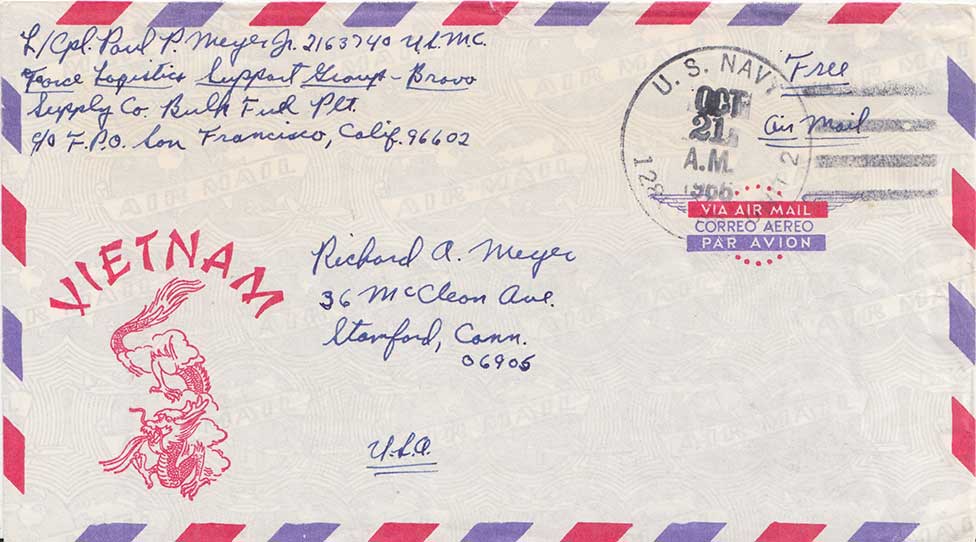 L/Cpl. Paul P. Meyer Jr. 2163740 U.S.M.C.
Force Logistics Support Group - Bravo
Supply Co. Bulk Fuel Plt.
c/o F.P.O. San Francisco, Calif. 96602
U. S. NAVY
OCT
21
A.M.
Free
Air Mail
VIA AIR MAIL
CORREO AEREO
PAR AVION
VIETNAM
Richard A. Meyer
36 McClean Ave.
Stamford, Conn.
06905
U.S.A.